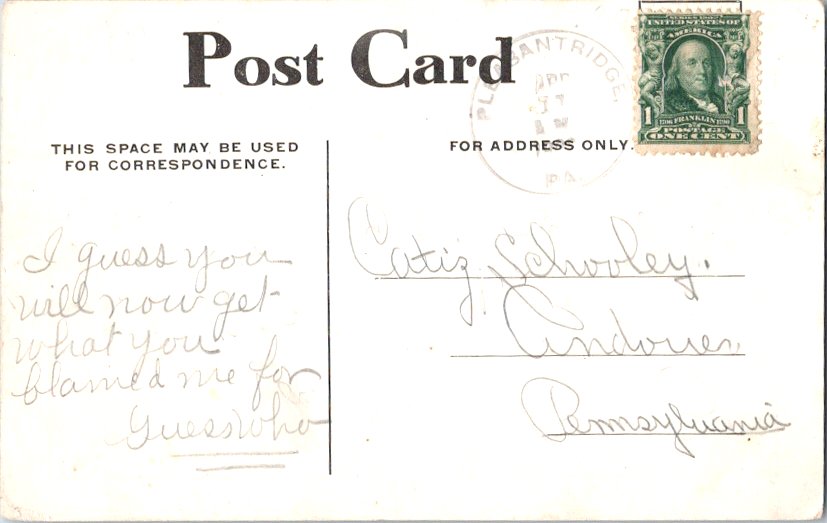 Post Card
PLEASANTRIDGE,
APR
PA.
SERIES 1902
UNITED STATES OF
AMERICA
1 1
1706 FRANKLIN 1790
POSTAGE
ONE CENT
THIS SPACE MAY BE USED
FOR CORRESPONDENCE.
FOR ADDRESS ONLY.
I guess you
will now get
what you
blamed me for
Guess who
Catiz Schooley.
Andover
Pennsylvania